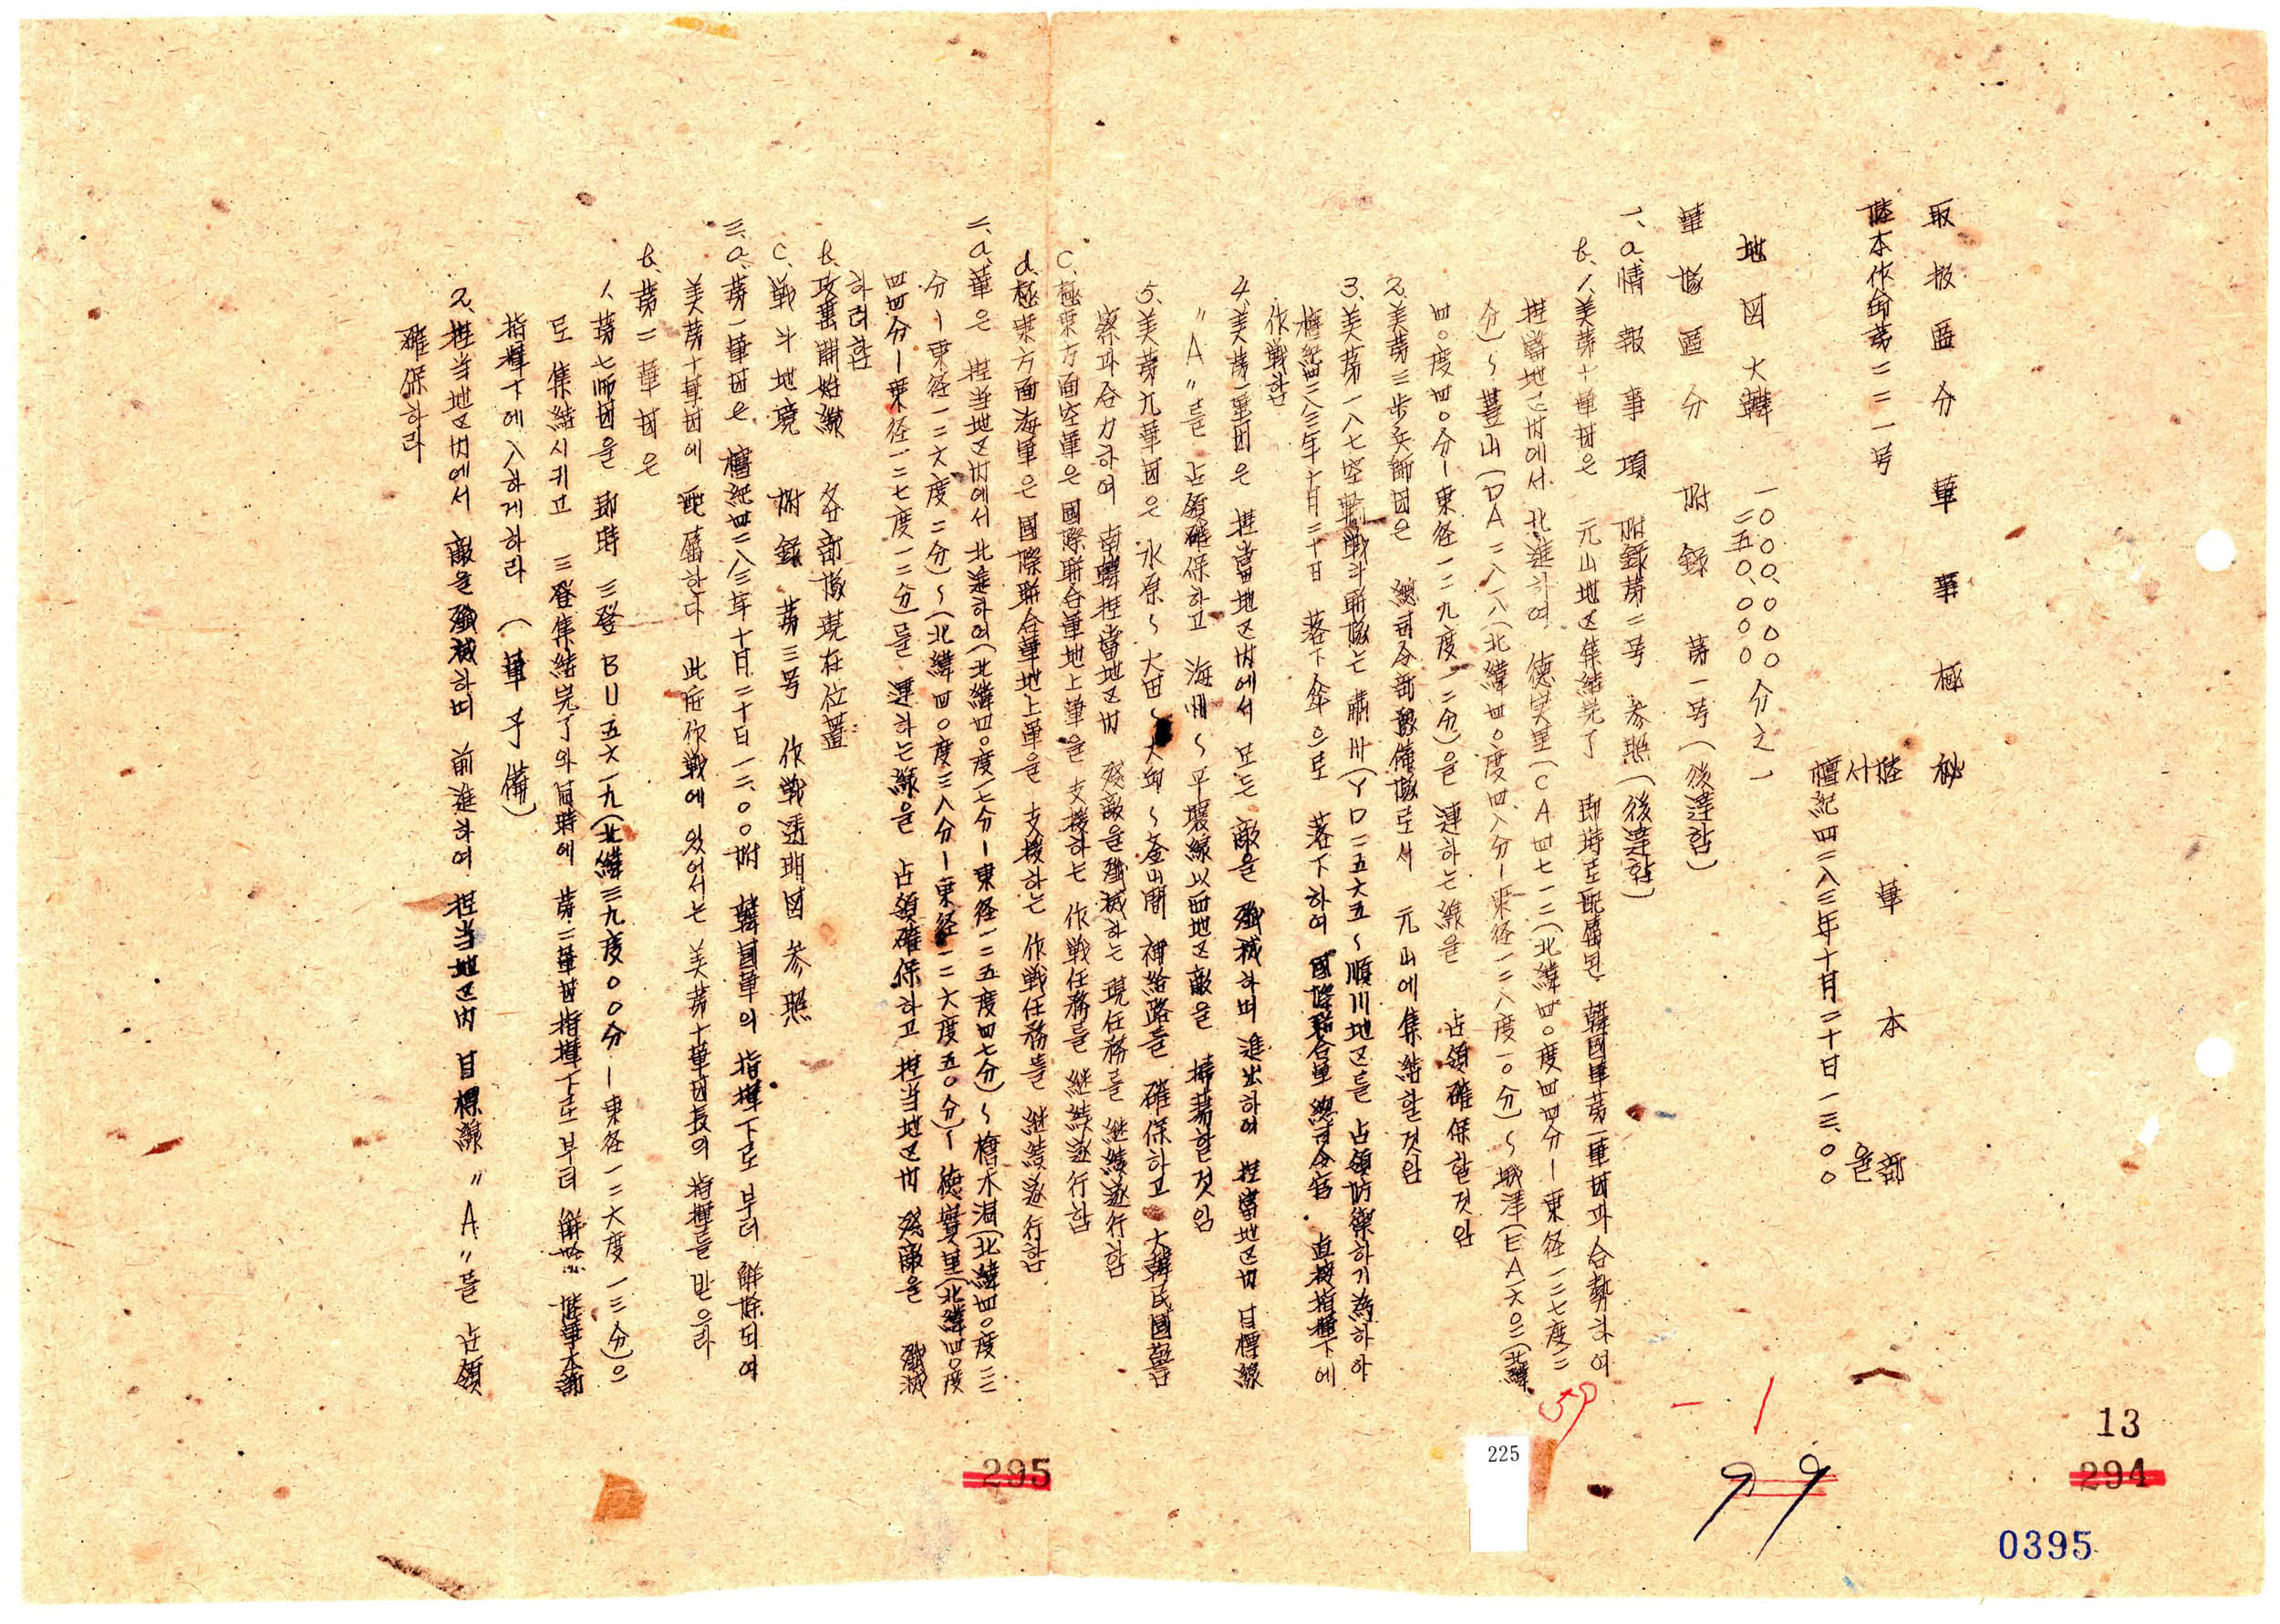 取扱區分 軍事極秘
陸本作命苐二二一号
陸軍本部
서울
檀紀四二八三年十月二十日一三.〇〇
地図大韓 一〇〇〇.〇〇〇分之一
二五〇.〇〇〇
軍隊區分 附錄 苐一号(後達함)
1、a.情報事項 附錄苐二号 参照(後達함)
b.1.美苐十軍団은 元山地区集結完了 即時로配屬된 韓國軍苐一軍団과合勢하여
担當地区内에서 北進하여 德実里(CA四七一二(北緯四〇度四四分ー東径一二七度一二
分)～豊山(DA二八八(北緯四〇度四八分ー東径一二八度一〇分)～城津(EA六〇二(北緯
四〇度四〇分ー東径一二九度一二分)을 連하는線을 占領確保할것임
2.美苐三歩兵師団은 總司令部豫備隊로서 元山에集結할것임
3.美苐一八七空輸戰斗聯隊는 肅川(YD二五六五～順川地区를 占領防禦하기為하야
檀紀四二八三年十月二十日 落下傘으로 落下하여 國際聯合軍總司令官 直接指揮下에
作戦함
4.美苐八軍은 担當地区内에서 모든 敵을 殲滅하며 進出하여 担當地区内 目標線
〃A〃를 占領確保하고 海州～平壤線以西地区敵을 掃蕩할것임
5.美苐九軍団은 水原～大田～大邱～釜山間 補給路를 確保하고 大韓民國警
察과合力하여 南韓担當地区内 残敵을殲滅하는 現任務를 継續遂行함
C.極東方面空軍은 國際聯合軍地上軍을 支援하는 作戦任務를 継続遂行함
d.極東方面海軍은 國際聯合軍地上軍을 支援하는 作戦任務를 継続遂行함
二、a.軍은 担当地区内에서 北進하여(北緯四〇度一七分ー東径一二五度四七分)～檜木洞(北緯四〇度二三
分ー東径一二六度二分)～(北緯四〇度三八分ー東径一二六度五〇分)～德實里(北緯四〇度
四四分ー東径一二七度一二分)를 連하는線을 占領確保하고 担当地区内 残敵을 殲滅
하려함
b.攻撃開始線 各部隊現在位置
C.戦斗地境 附錄 苐三号 作戰透明図参照
三、a.苐一軍団은 檀紀四二八三年十月二十日一二.〇〇附 韓國軍의 指揮下로부터 解除되여
美苐十軍団에 配屬한다 此后作戦에 있어서는 美苐十軍団長의 指揮를 받으라
b.苐二軍団은
1.苐七師団을 即時 三登 BU五六一九(北緯三九度〇〇分ー東径一二六度一三分)으
로 集結시키고 三登集結完了와同時에 苐二軍団指揮下로부터 解除 陸軍本部
指揮下에入하게하라 (軍予備)
2.担当地区内에서 敵을殲滅하며 前進하여 担当地区内 目標線〃A〃를 占領
確保하라
59 - 1
99
225
13
294
295
0395